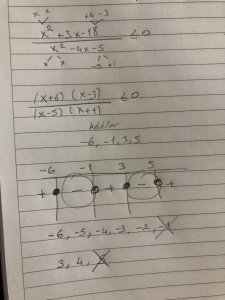 x x +6 -3
x² + 3x - 18 ≤ 0
x² - 4x - 5
x x -5 +1
(x+6) (x-3) ≤ 0
(x-5) (x+1)
kökler
-6, -1, 3, 5
-6 -1 3 5
+ - + - +
-6, -5, -4, -3, -2, -1
3, 4, 5